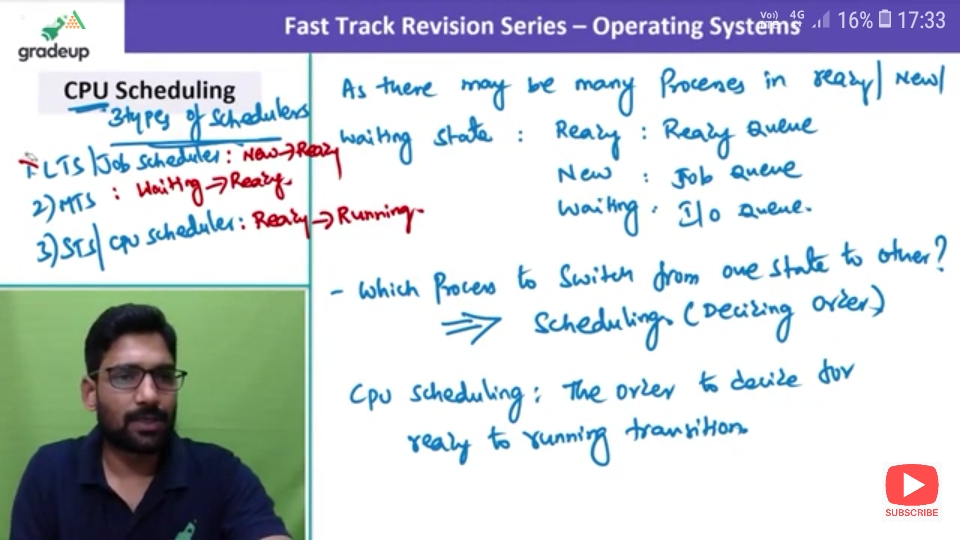 Fast Track Revision Series – Operating Systems
Vo)) 4G 16% 17:33
gradeup
CPU Scheduling
3 types of Schedulers
1. LTS/Job Scheduler : New→Ready
2) MTS : Waiting→Ready.
3) STS/ CPU scheduler : Ready→Running.
As there may be many Processes in ready/ New/
Waiting State : Ready : Ready Queue
New : Job Queue
Waiting : I/O Queue.
- Which Process to Switch from one state to other?
⇒ Scheduling. (Deciding order)
CPU scheduling : The order to decide for
ready to running transition.
SUBSCRIBE